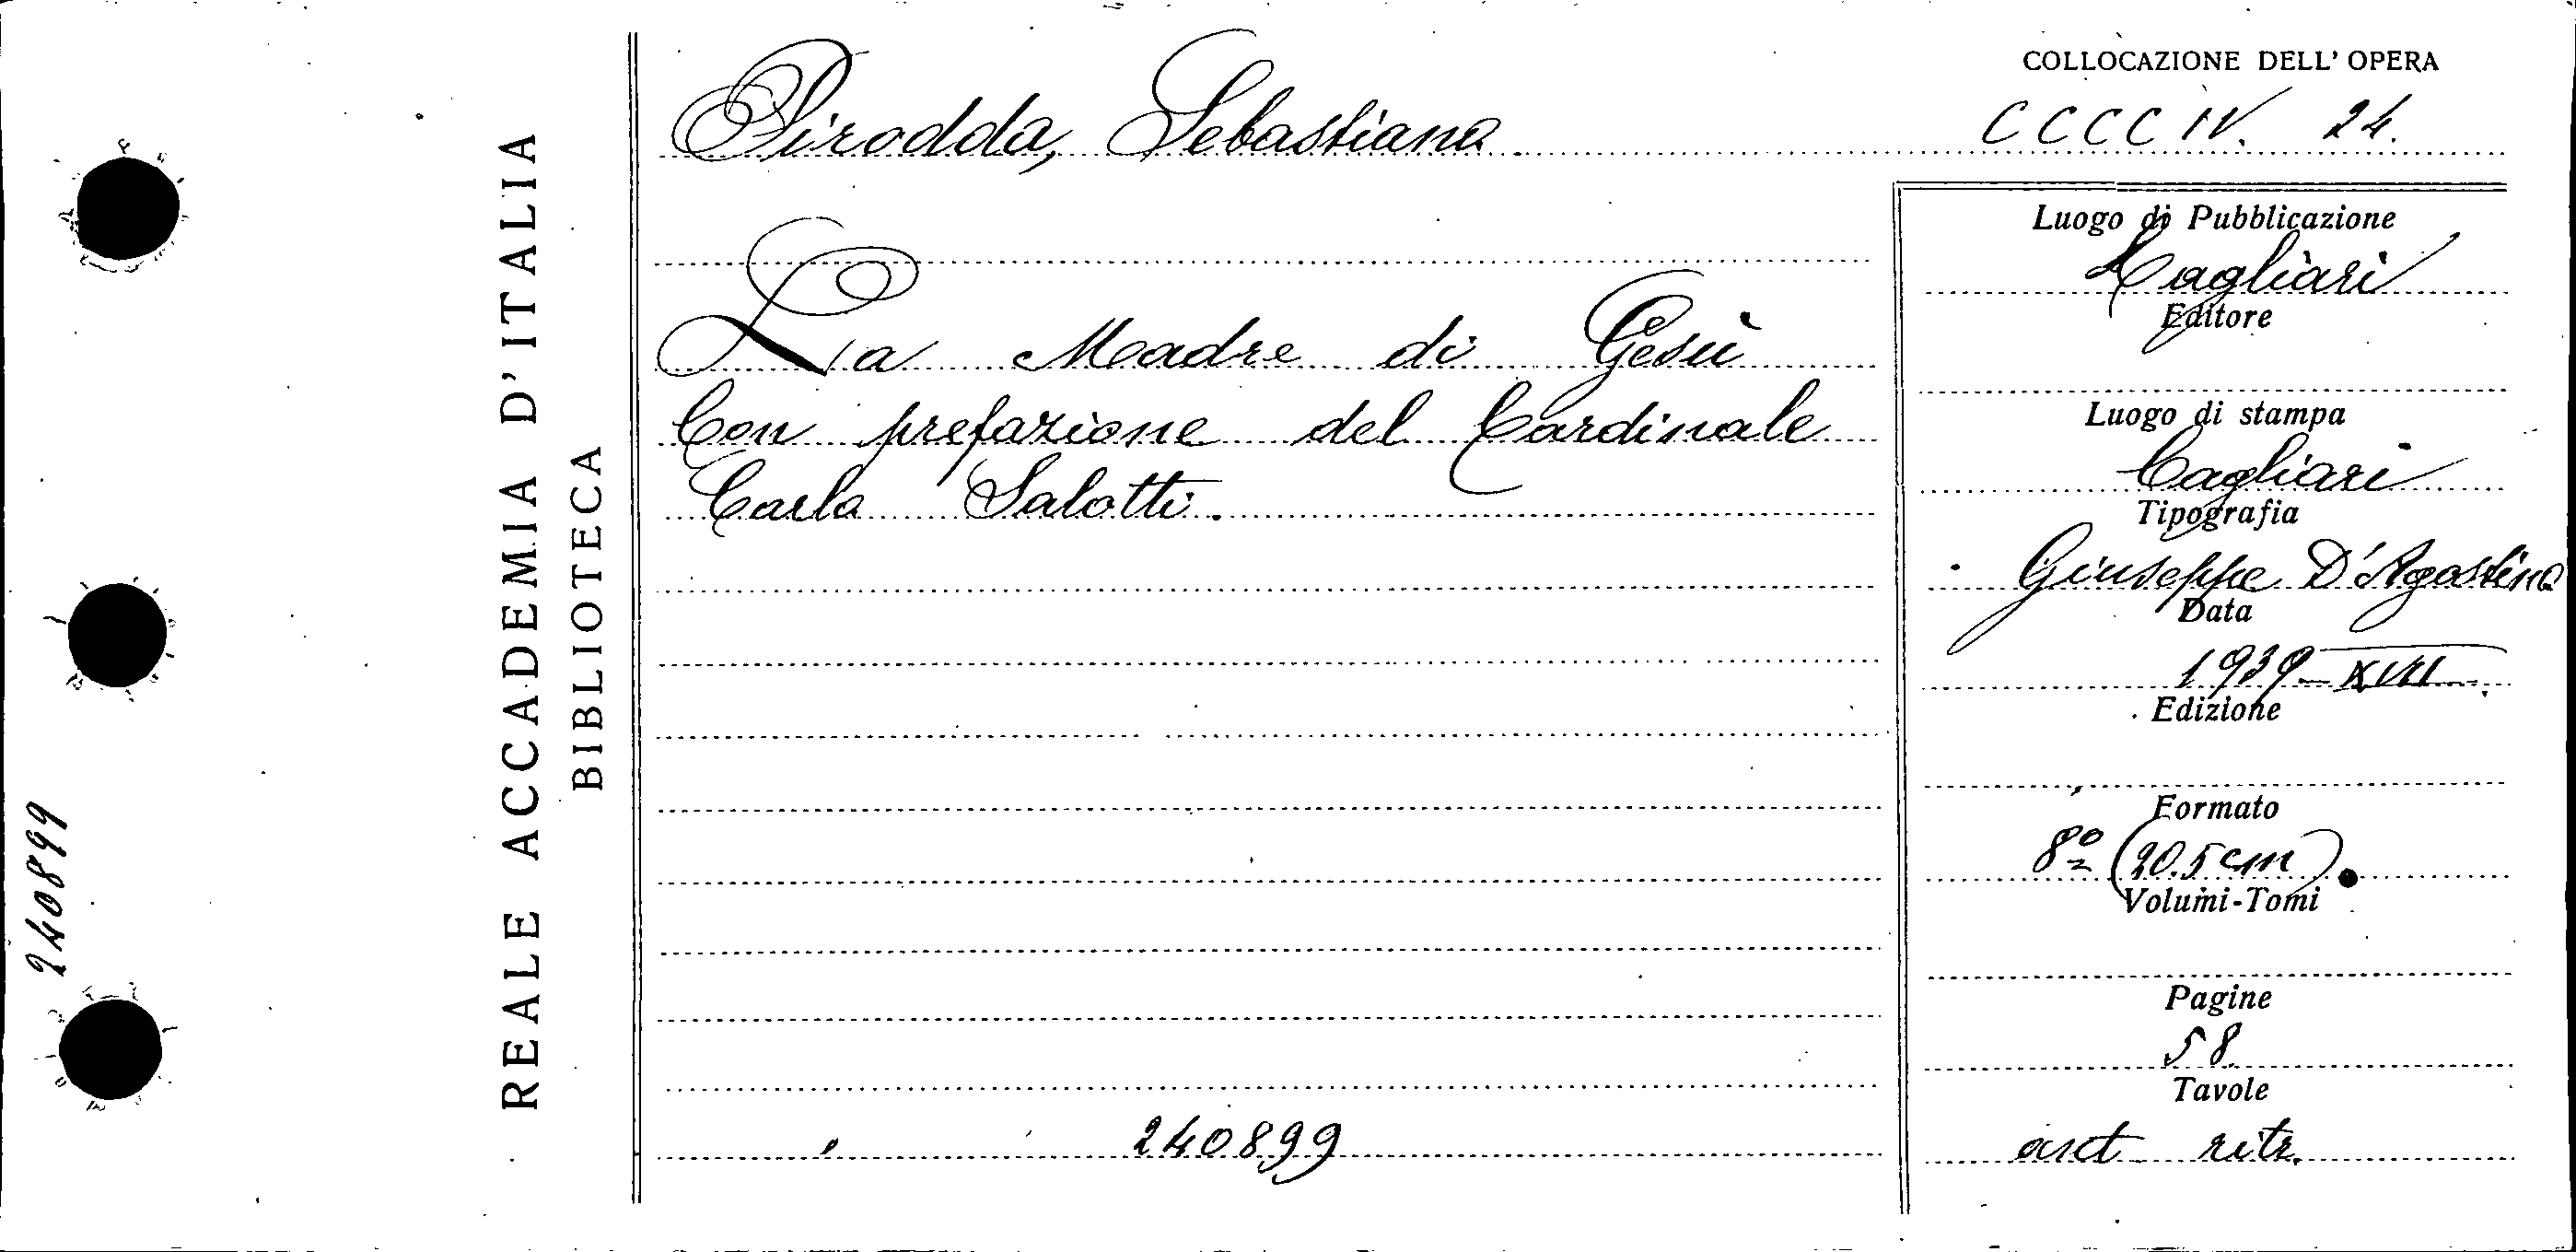 REALE ACCADEMIA D'ITALIA
BIBLIOTECA
240899
Pirodda, Sebastiana
La Madre di Gesù
Con prefazione del Cardinale
Carlo Salotti.
240899
COLLOCAZIONE DELL'OPERA
CCCCIV. 24.
Luogo di Pubblicazione
Cagliari
Editore
Luogo di stampa
Cagliari
Tipografia
Giuseppe D'Agostino
Data
1939-XVII
Edizione
Formato
8º (20.5 cm)
Volumi-Tomi
Pagine
58
Tavole
ritr.